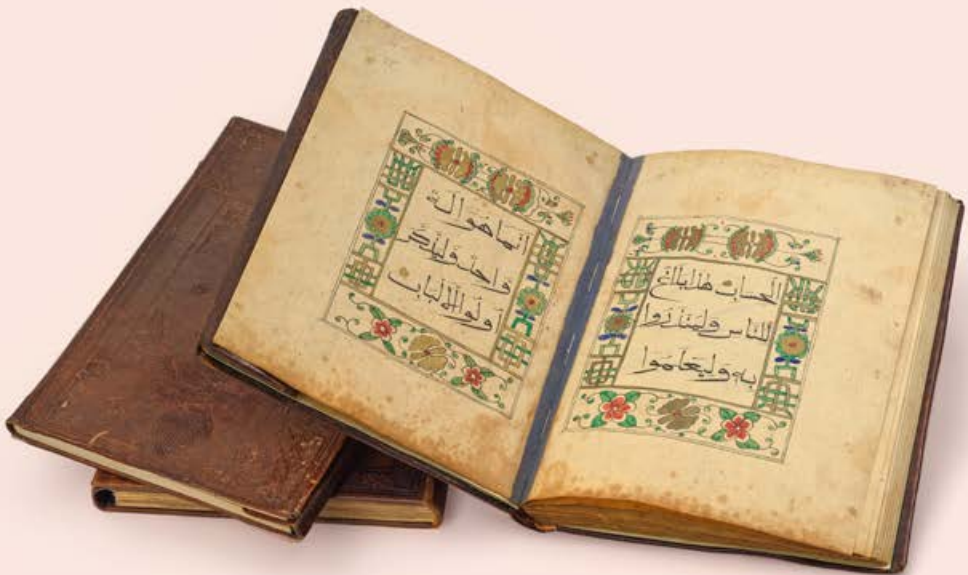 الحساب هذا بلاغ
للناس ولينذروا
به وليعلموا
أنما هو اله
واحد وليذكر
أولوا الألباب